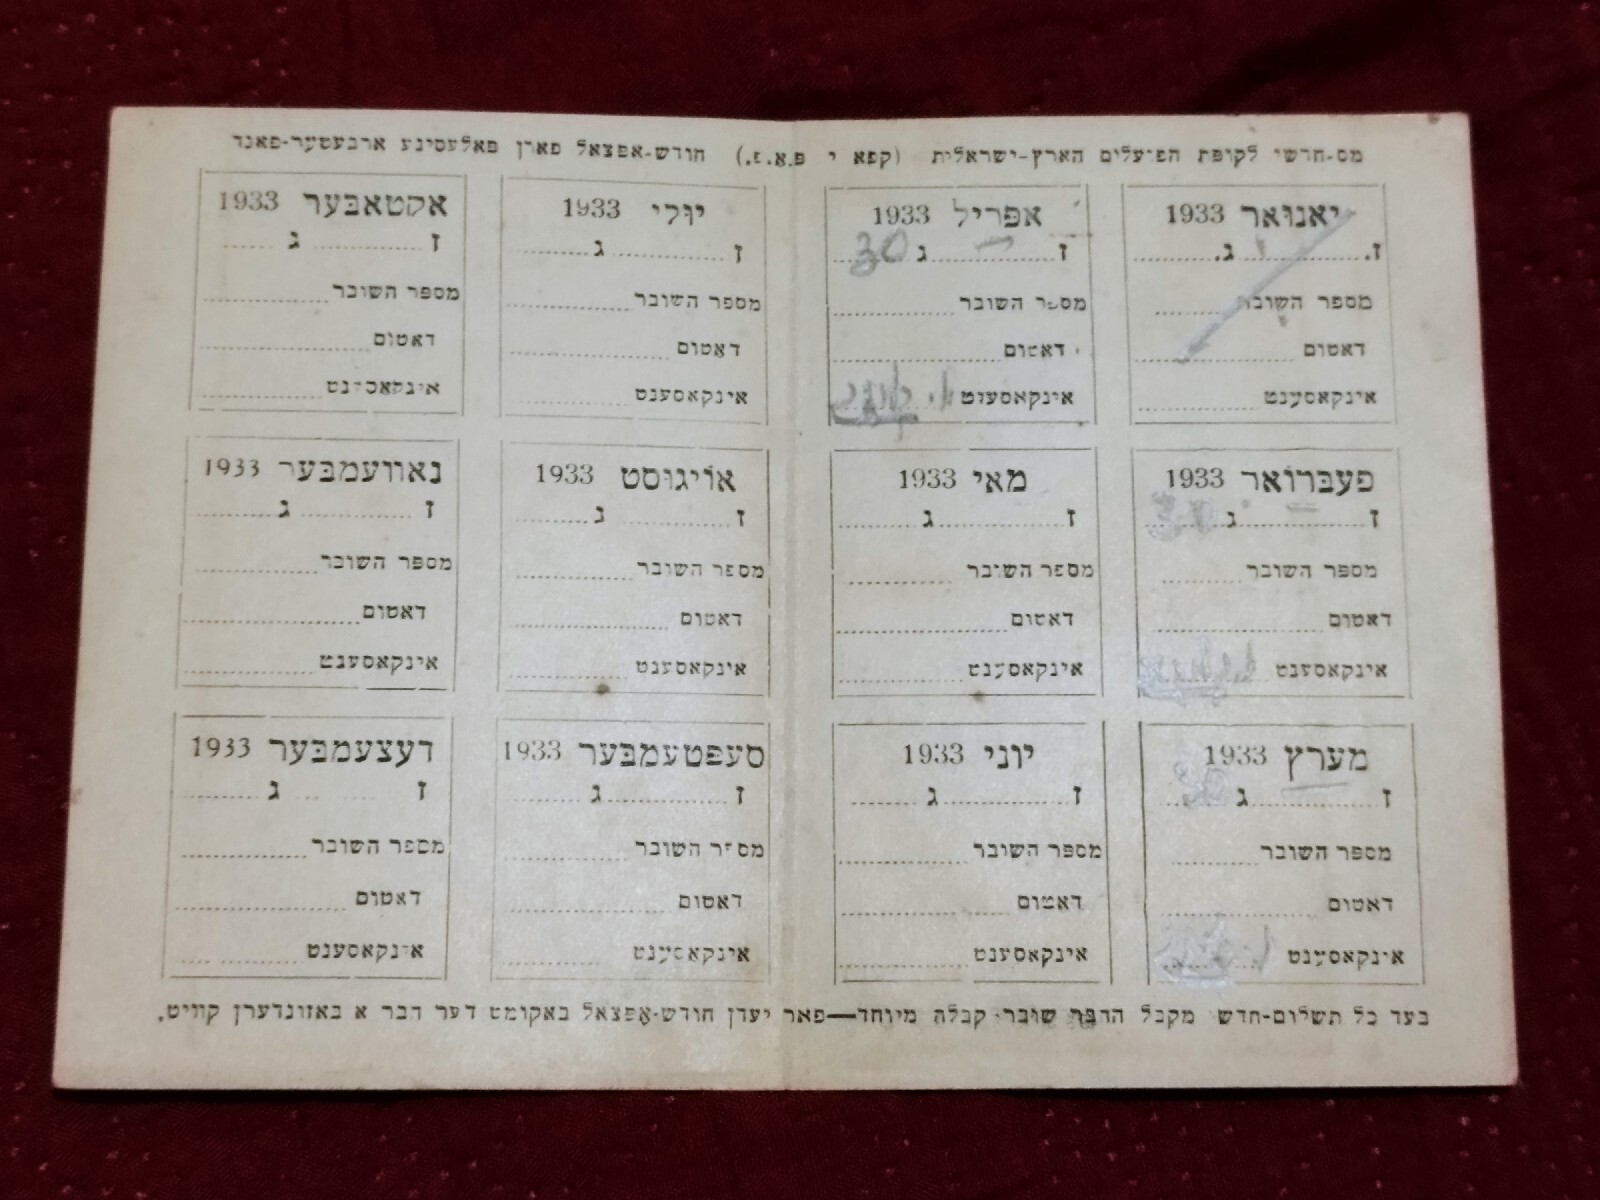 מס-חדשי לקופת הפועלים הארץ-ישראלית (קפא י פ.א.פ.) חודש-אפצאל פארן פאלעסטינע ארבעטער-פאנד
יאנואר 1933
ז. ג.
מספר השובר
דאטום
אינקאסענט
אפריל 1933
ז ג 30
מספר השובר
דאטום
אינקאסענט
יולי 1933
ז ג
מספר השובר
דאטום
אינקאסענט
אקטאבער 1933
ז ג
מספר השובר
דאטום
אינקאסענט
פעברואר 1933
ז ג
מספר השובר
דאטום
אינקאסענט
מאי 1933
ז ג
מספר השובר
דאטום
אינקאסענט
אויגוסט 1933
ז ג
מספר השובר
דאטום
אינקאסענט
נאוועמבער 1933
ז ג
מספר השובר
דאטום
אינקאסענט
מערץ 1933
ז ג
מספר השובר
דאטום
אינקאסענט
יוני 1933
ז ג
מספר השובר
דאטום
אינקאסענט
סעפטעמבער 1933
ז ג
מספר השובר
דאטום
אינקאסענט
דעצעמבער 1933
ז ג
מספר השובר
דאטום
אינקאסענט
בעד כל תשלום-חדש מקבל החבר שובר קבלה מיוחד—פאר יעדן חודש-אָפצאל באקומט דער חבר א באזונדערן קוויט.